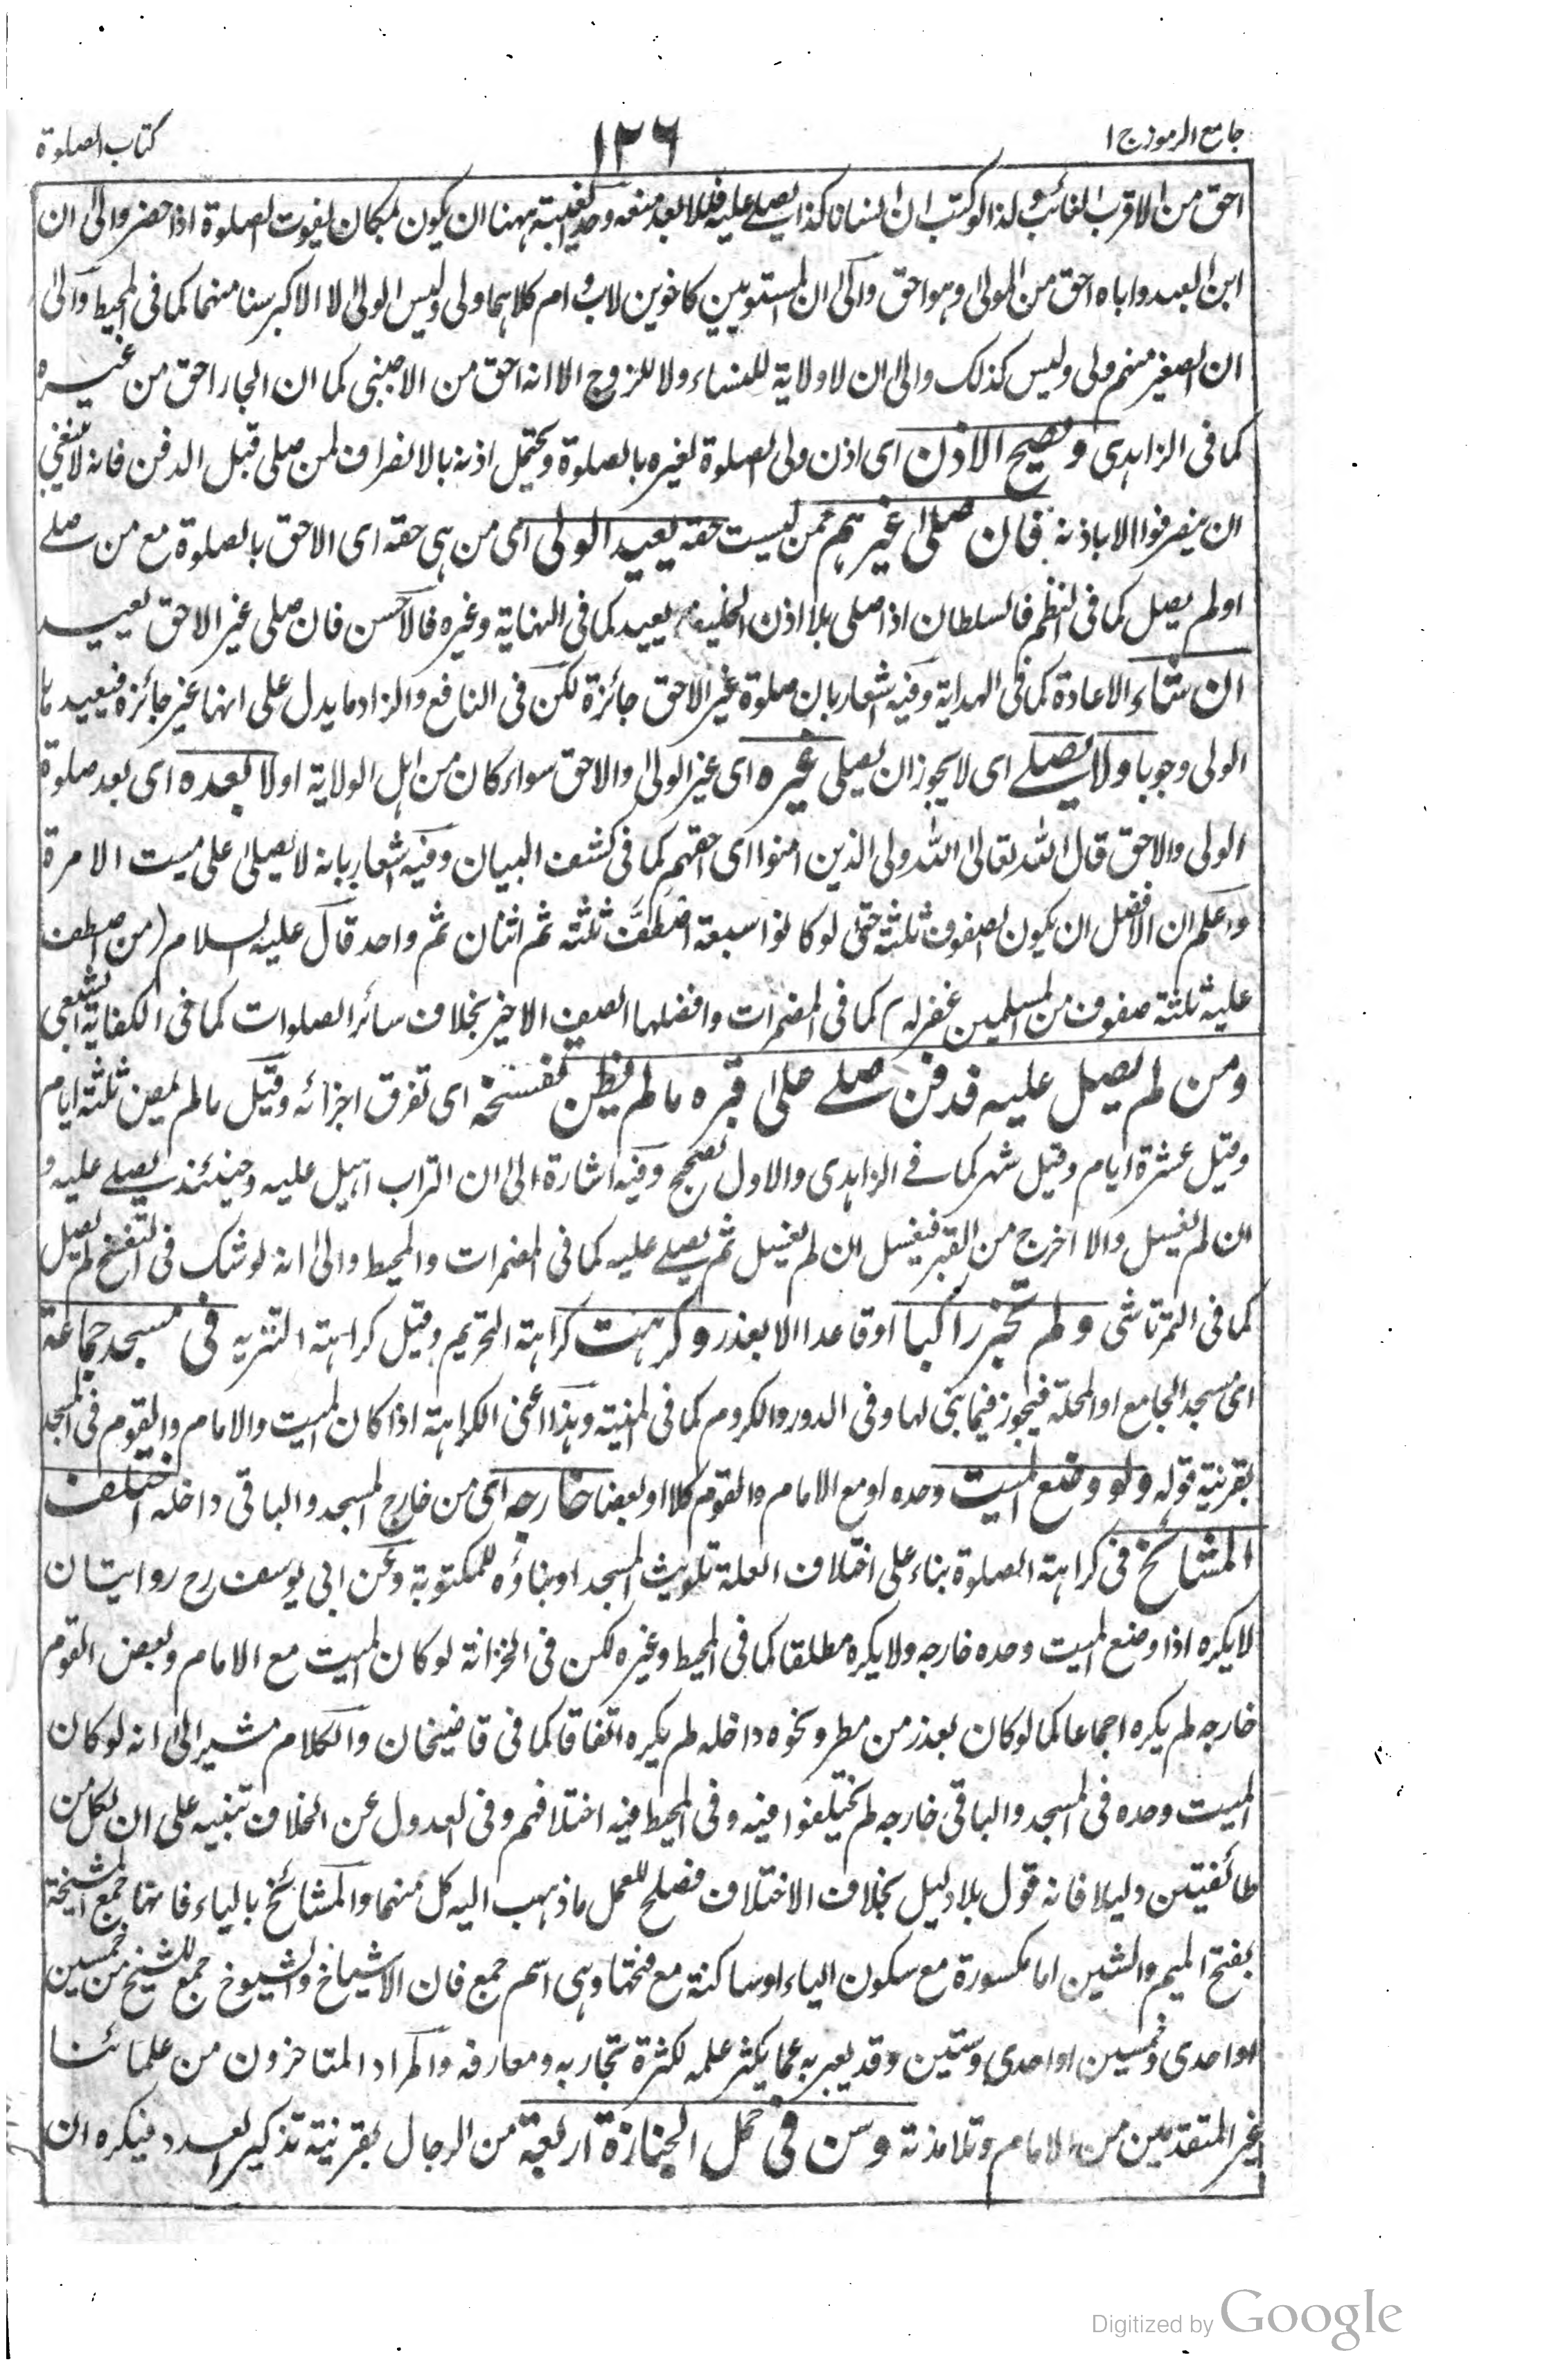 جامع الرموز ج ١
١٢٦
كتاب الصلوة
احق من الاقرب الغائب ولذا لو كتب ان انسانا كذا يصلي عليه فللابعد منعه وحد الغيبة ههنا ان يكون بمكان يفوت الصلوة اذا حضر والى ان
ابن العبد واباه احق من المولى وهو احق والى ان المستويين كاخوين لاب وام كلاهما ولى وليس الولى الا الاكبر سنا منهما كما فى المحيط والى
ان الصغير منهم ولى وليس كذلك والى ان لا ولاية للنساء ولا للزوج الا انه احق من الاجنبى كما ان الجار احق من غيره
كما فى الزاهدى ويصح الاذن اى اذن ولى الصلوة لغيره بالصلوة ويحتمل اذنه بالانصراف لمن صلى قبل الدفن فانه لا ينبغي
ان ينصرفوا الا باذنه فان صلى غيرهم ممن ليست حقه يعيد الولى اى من هى حقه اى الاحق بالصلوة مع من صلے
او لم يصل كما فى النظم فالسلطان اذا صلى بلا اذن الخليفة يعيد كما فى النهاية وغيره فالاحسن فان صلى غير الاحق يعيد
ان شاء الاعادة كما فى الهداية وفيه اشعار بان صلوة غير الاحق جائزة لكن فى النافع والزاد ما يدل على انها غير جائزة فيعيدها
الولى وجوبا ولا يصلے اى لا يجوز ان يصلى غيره اى غير الولى والاحق سواء كان من اهل الولاية اولا بعده اى بعد صلوة
الولى والاحق قال الله تعالى الله ولى الذين امنوا اى احقهم كما فى كشف البيان وفيه اشعار بانه لا يصلى على ميت الا مرة
واعلم ان الافضل ان يكون الصفوف ثلثة حتى لو كانوا سبعة اصطف ثلثة ثم اثنان ثم واحد قال عليه السلام (من اصطف
عليه ثلثة صفوف من المسلمين غفر له) كما فى المضمرات وافضلها الصف الاخير بخلاف سائر الصلوات كما فى الكفاية الشعبى
ومن لم يصل عليه فدفن صلے على قبره ما لم يظن تفسخه اى تفرق اجزائه وقيل ما لم يمض ثلثة ايام
وقيل عشرة ايام وقيل شهر كما فے الزاهدى والاول الصحيح وفيه اشارة الى ان التراب اهيل عليه وحينئذ يصلے عليه و
ان لم يغسل والا اخرج من القبر فيغسل ان لم يغسل ثم يصلے عليه كما فى المضمرات والمحيط والى انه لو شك فى التفسخ لم يصل
كما فى التمرتاشى ولم تجز راكبا او قاعدا الا بعذر وكرهت كراهة التحريم وقيل كراهة التنزيه فى مسجد جماعة
اى مسجد الجامع او المحلة فيجوز فيما بنى لها وفى الدور والكروم كما فى المنية وهذا اعنى الكراهة اذا كان الميت والامام والقوم فى المسجد
بقرينة قوله ولو وضع الميت وحده او مع الامام والقوم كلا او بعضا خارجه اى من خارج المسجد والباقى داخله اختلف
المشائخ فى كراهة الصلوة بناء على اختلاف العلة تلويث المسجد او بناؤه للمكتوبة وعن ابى يوسف رح روايتان
لا يكره اذا وضع الميت وحده خارجه ولا يكره مطلقا كما فى المحيط وغيره لكن فى الخزانة لو كان الميت مع الامام وبعض القوم
خارجه لم يكره اجماعا كما لو كان بعذر من مطر ونحوه داخله لم يكره اتفاقا كما فى قاضيخان والكلام مشير الى انه لو كان
الميت وحده فى المسجد والباقى خارجه لم يختلفوا فيه وفى المحيط فيه اختلافهم وفى العدول عن الخلاف تنبيه على ان لكل من
طائفتين دليلا فانه قول بلا دليل بخلاف الاختلاف فصلح للعمل ما ذهب اليه كل منهما والمشائخ بالياء فانها جمع المشيخة
بفتح الميم والشين اما مكسورة مع سكون الياء او ساكنة مع فتحها وهى اسم جمع فان الاشياخ والشيوخ جمع للشيخ من خمسين
او احدى وخمسين او احدى وستين وقد يعبر به عما يكثر علمه لكثرة تجاربه ومعارفه والمراد المتاخرون من علمائنا
غير المتقدمين من الامام وتلامذته وسن فى حمل الجنازة اربعة من الرجال بقرينة تذكير العدد فيكره ان
Digitized by Google